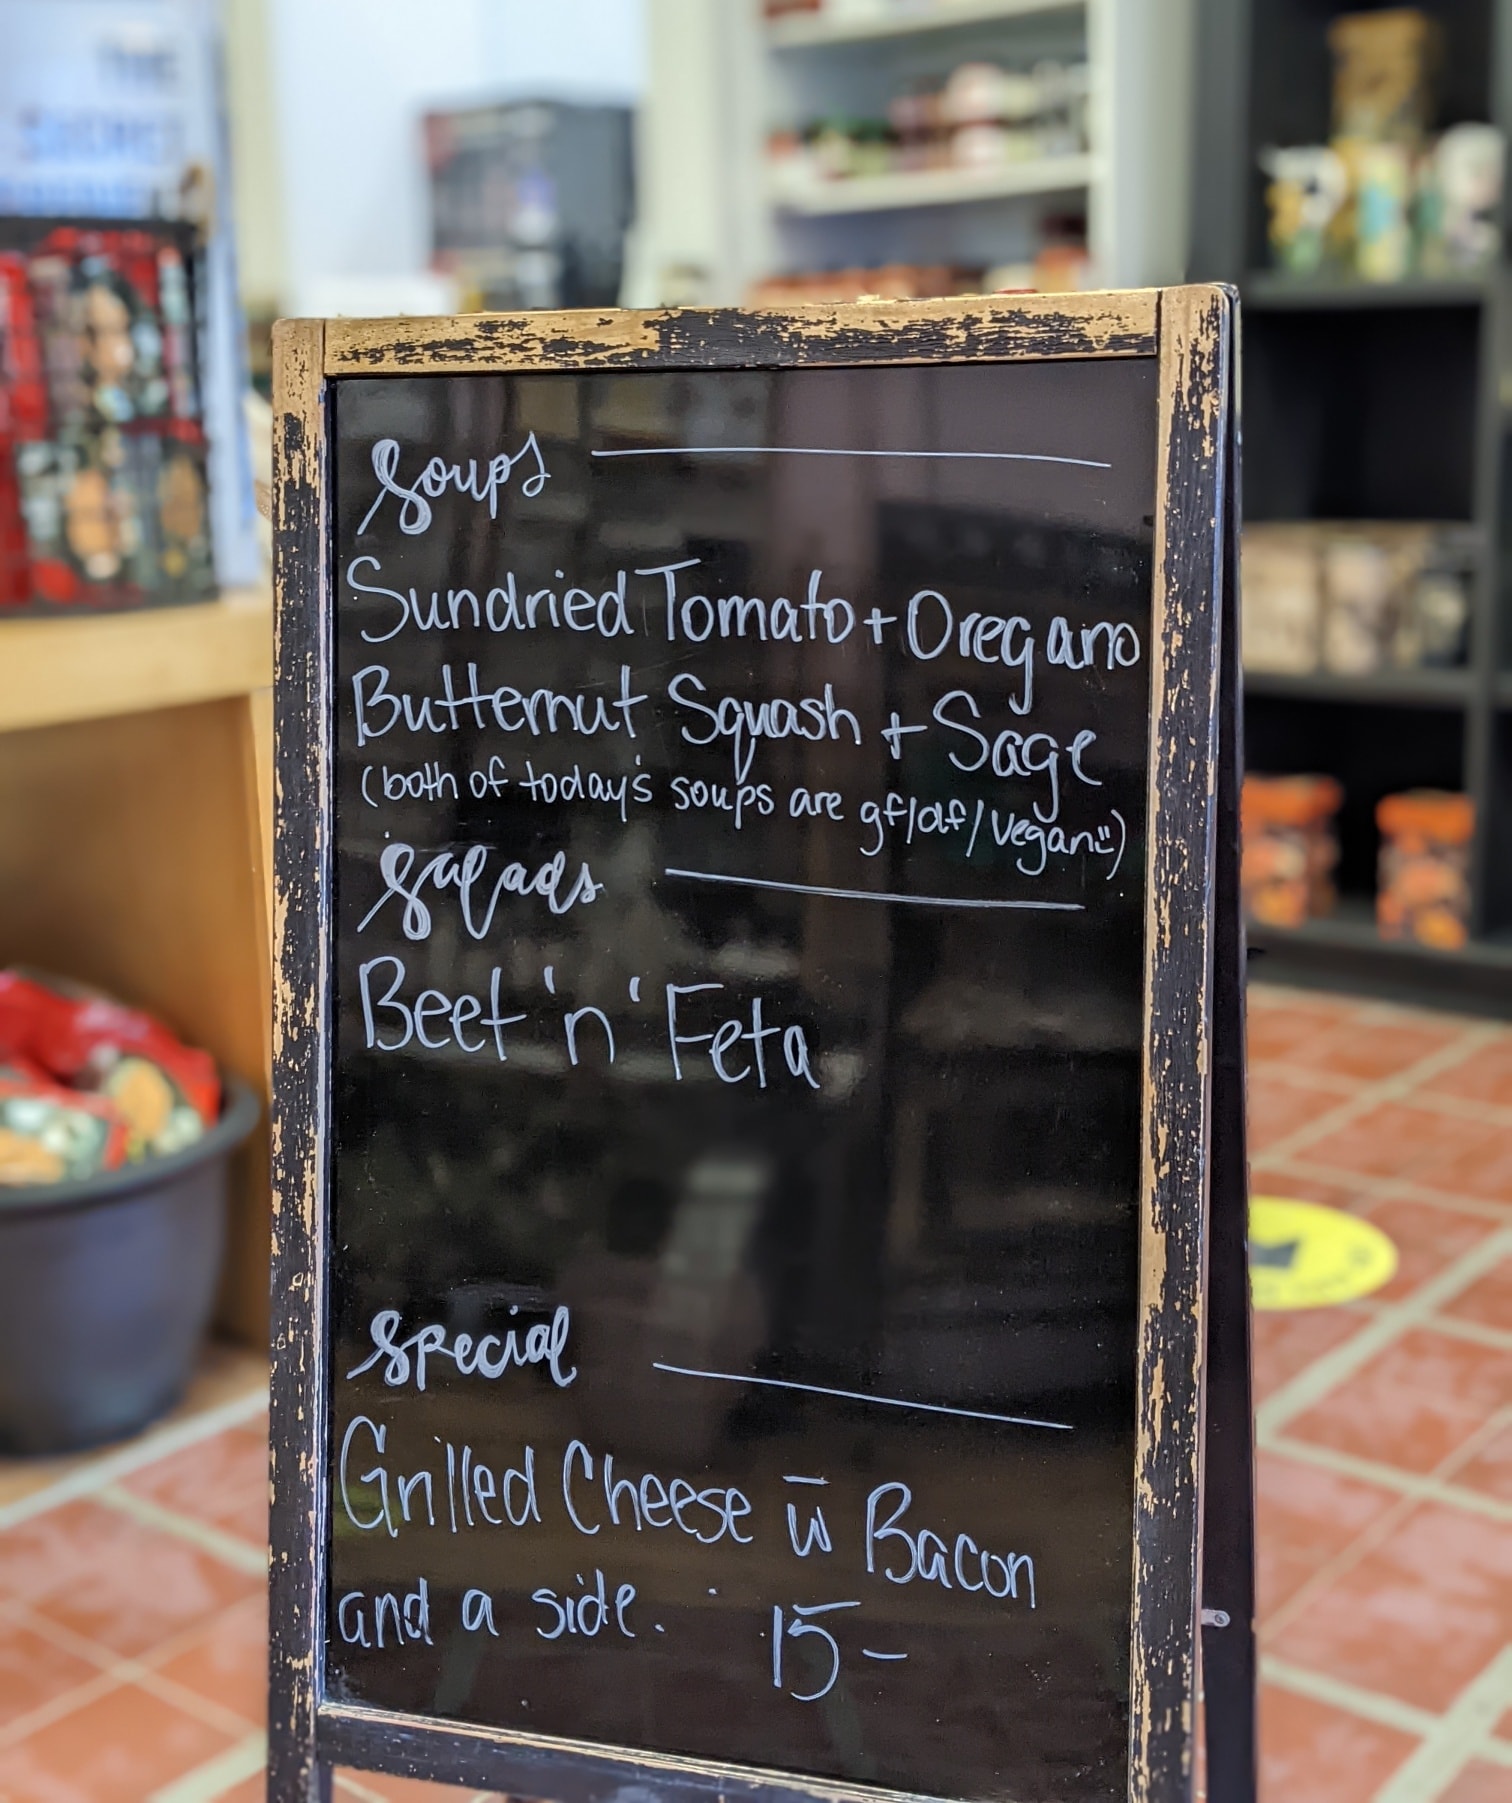 Soups
Sundried Tomato + Oregano
Butternut Squash + Sage
(both of today's soups are gf/df/vegan :))
Salads
Beet 'n' Feta
Special
Grilled Cheese w̅ Bacon
and a side. 15-
THE